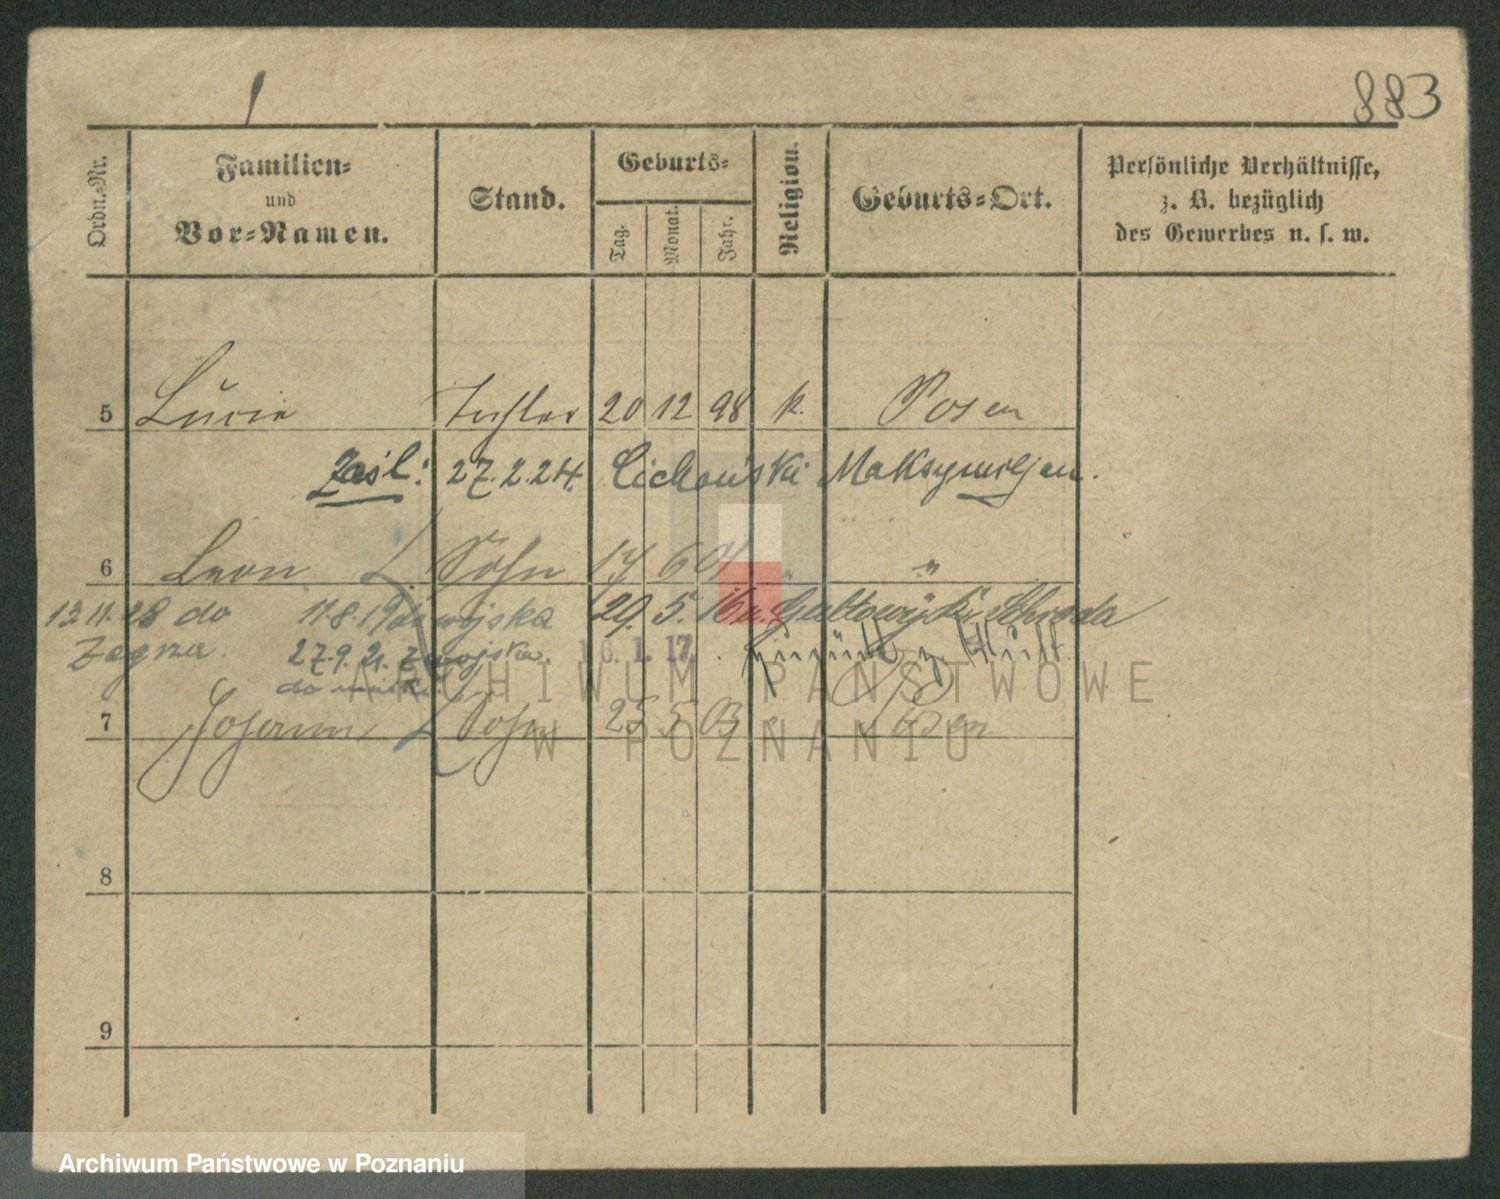 883
Ordn.-Nr.
Familien-
und
Vor-Namen.
Stand.
Geburts-
Tag.
Monat.
Jahr.
Religion.
Geburts-Ort.
Persönliche Verhältnisse,
z. B. bezüglich
des Gewerbes u. s. w.
5 Lucie Tochter 20 12 98 k. Posen
Zaśl: 27.2.24. Cichoński Maksymiljan.
6 Leon Sohn 17 6 01 " "
13.11.28 do 11.8.19 do wojska 29. 5. 16 n. Schroda
Zegrza. 27.9.21. z wojska. 16. 1. 17. zurück v.
do
7 Johann Sohn 25 5 03 " Posen
8
9
ARCHIWUM PAŃSTWOWE
W POZNANIU
Archiwum Państwowe w Poznaniu